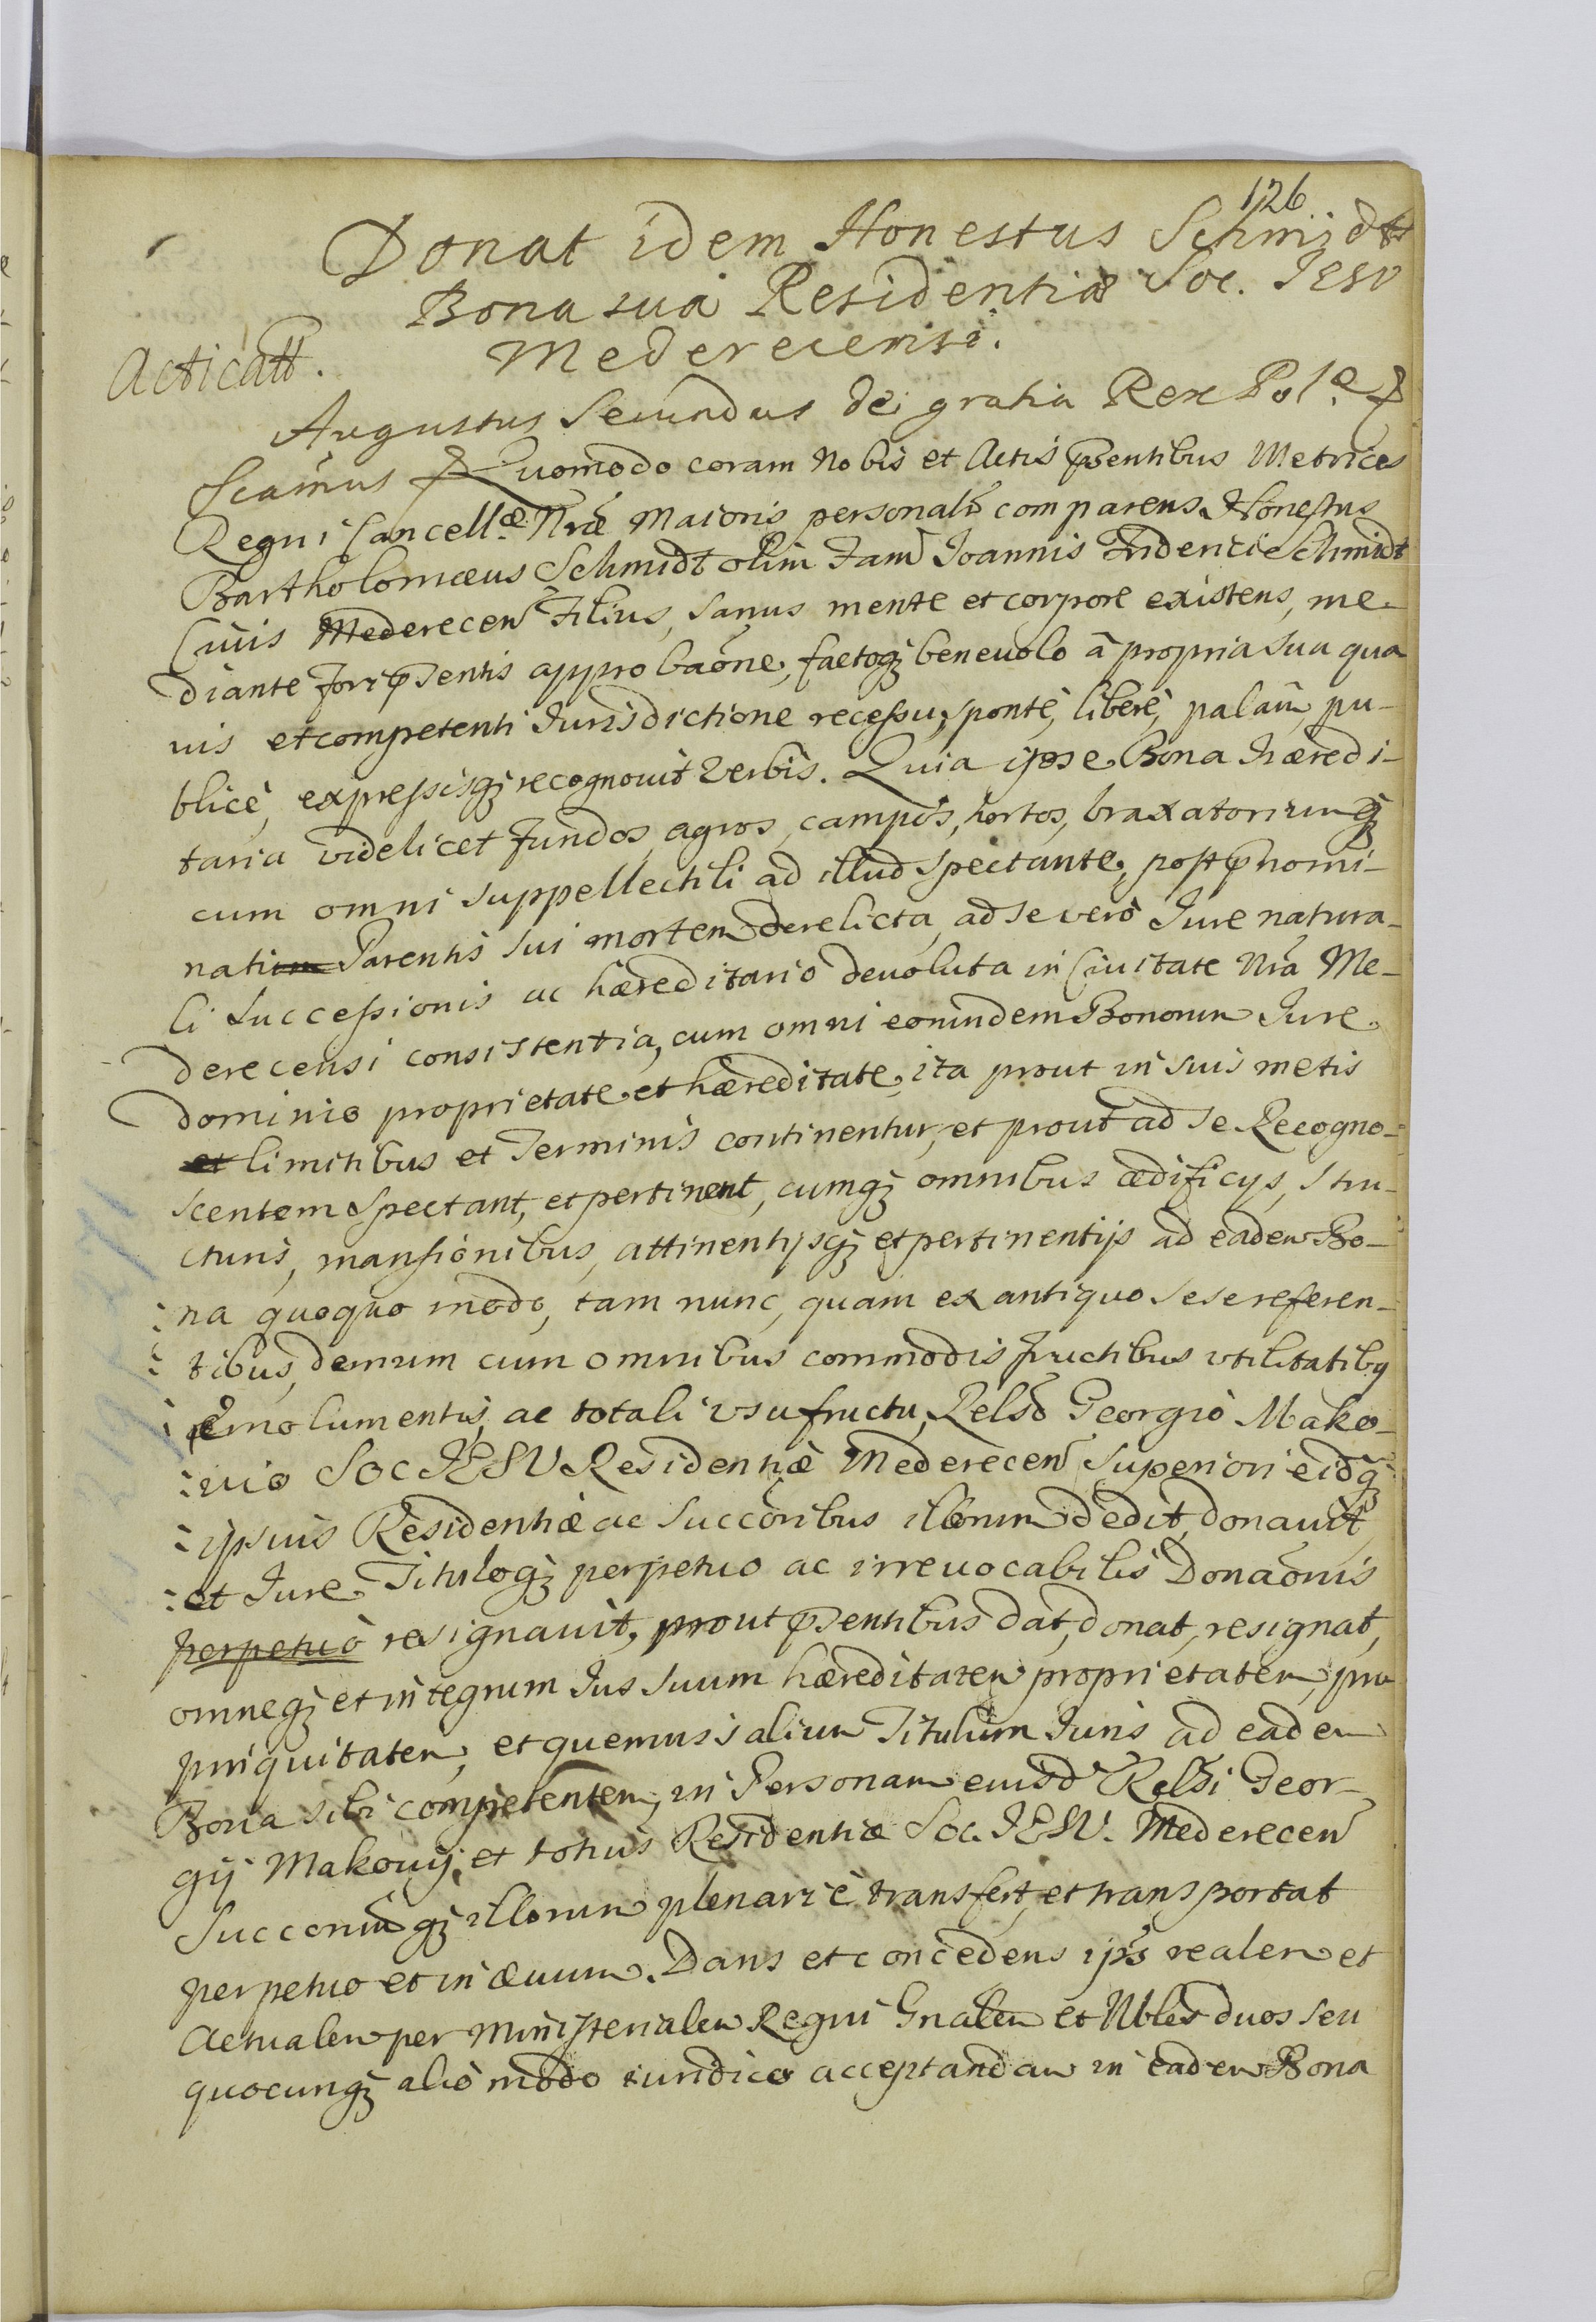 126
Donat idem Honestus Schmidt
Bona sua Residentiæ Soc. Iesu
Mederecensi.
Acticatt.
Augustus Secundus Dei gratia Rex Pol.æ
Scamus Quomodo coram Nobis et Actis pñtibus Metrices
Regni Cancell.æ Nræ Maioris personalr comparens Honestus
Bartholomæus Schmidt olim Fam Ioannis Friderici Schmidt
Ciuis Mederecen Filius, sanus mente et corpore existens, me-
diante Fori psentis approbaõne, factoq; benevolo â propria sua qua
uis et competenti Iurisdictione recessu, spontè, liberè, palàm, pu-
blicè, expressisq; recognouit verbis. Quia ipse Bona Hæredi-
taria videlicet fundos, agros, campos, hortos, braxatoriumq;
cum omni suppellectili ad illud spectante, post pnomi-
nati Parentis sui mortem derelicta, ad se verò Iure natura-
li Successionis ac hæreditario devoluta in Ciuitate Nrã Me-
derecensi consistentia, cum omni eorundem Bonorum Iure
dominio proprietate et hæreditate, ita prout in suis metis
et limitibus et Terminis continentur, et prout ad se Recogno-
scentem spectant, et pertinent, cumq; omnibus ædificys, stru-
cturis, mansionibus, attinentysq; et pertinentijs ad eadem Bo-
na quoquo modo, tam nunc, quam ex antiquo sese referen-
tibus, demum cum omnibus commodis fructibus vtilitatibq
emolumentis, ac totali vsufructu, Relsõ Georgio Mako-
uio Soc IESV Residentiæ Mederecen Superiori eidq;
ipsius Residentiæ ac Succoribus illorum dedit, donauit,
et Iure Tituloq; perpetuo ac irreuocabilis Donaõnis
perpetuò resignauit, prout psentibus dat, donat, resignat,
omneq; et integrum Ius suum hæreditatem proprietatem, pro
pinquitatem, et quemuis alium Titulum Iuris ad eadem
Bona sibi competentem, in Personam eiusd Relsi Geor-
gij Makouij, et totius Residentiæ Soc. IESV. Mederecen
Succorumq; illorum plenariè transfert, et transportat
perpetuo et in æuum. Dans et concedens ipŝ realem et
actualem per Ministerialem Regni Gnalem et Nbles duos seu
quocunq; alio modo iuridico acceptandam in eadem Bona